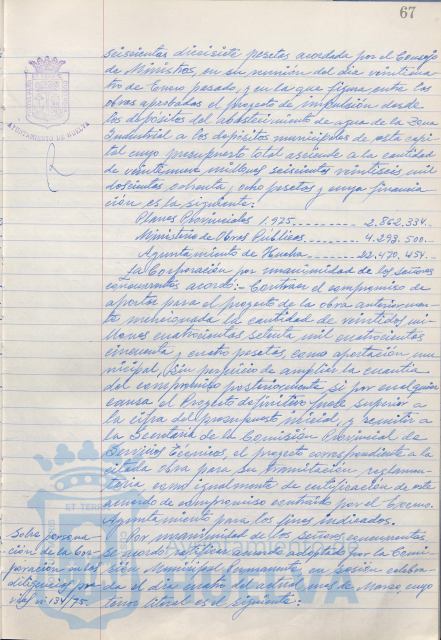 67
seiscientas diecisiete pesetas acordada por el Consejo
de Ministros, en su reunión del dia veinticua
tro de Enero pasado, y en la que figura entre las
obras aprobadas el proyecto de impulsión desde
los depósitos del abastecimiento de agua de la Zona
Industrial a los depósitos municipales de esta capi
tal cuyo presupuesto total asciende a la cantidad
de veintinueve millones seiscientos veintiseis mil
doscientas ochenta y ocho pesetas y cuya financia
ción es la siguiente:
Planes Provinciales 1.975 2.862.334.-
Ministerio de Obras Públicas 4.293.500.-
Ayuntamiento de Huelva 22.470.454.-
La Corporación por unanimidad de los señores
concurrentes acordó:- Contraer el compromiso de
aportar para el proyecto de la obra anteriormen
te mencionada la cantidad de veintidos mi
llones cuatrocientas setenta mil cuatrocientas
cincuenta y cuatro pesetas, como aportación mu
nicipal, sin perjuicio de ampliar la cuantia
del compromiso posteriormente si por cualquier
causa el Proyecto definitivo fuese superior a
la cifra del presupuesto inicial, y remitir a
la Secretaria de la Comisión Provincial de
Servicios Técnicos, el proyecto correspondiente a la
citada obra para su tramitación reglamen
taria como igualmente de certificación de este
acuerdo de compromiso contraido por el Excmo.
Ayuntamiento para los fines indicados.
Sobre persona
ción de la Cor
poración en los
Por unanimidad de los señores concurrentes
se acordó ratificar acuerdo adoptado por la Comi
sión Municipal Permanente, en sesión celebra
da el dia cuatro del actual mes de Marzo, cuyo
tenor literal es el siguiente:
nº 134/75.
AYUNTAMIENTO DE HUELVA
HUELVA